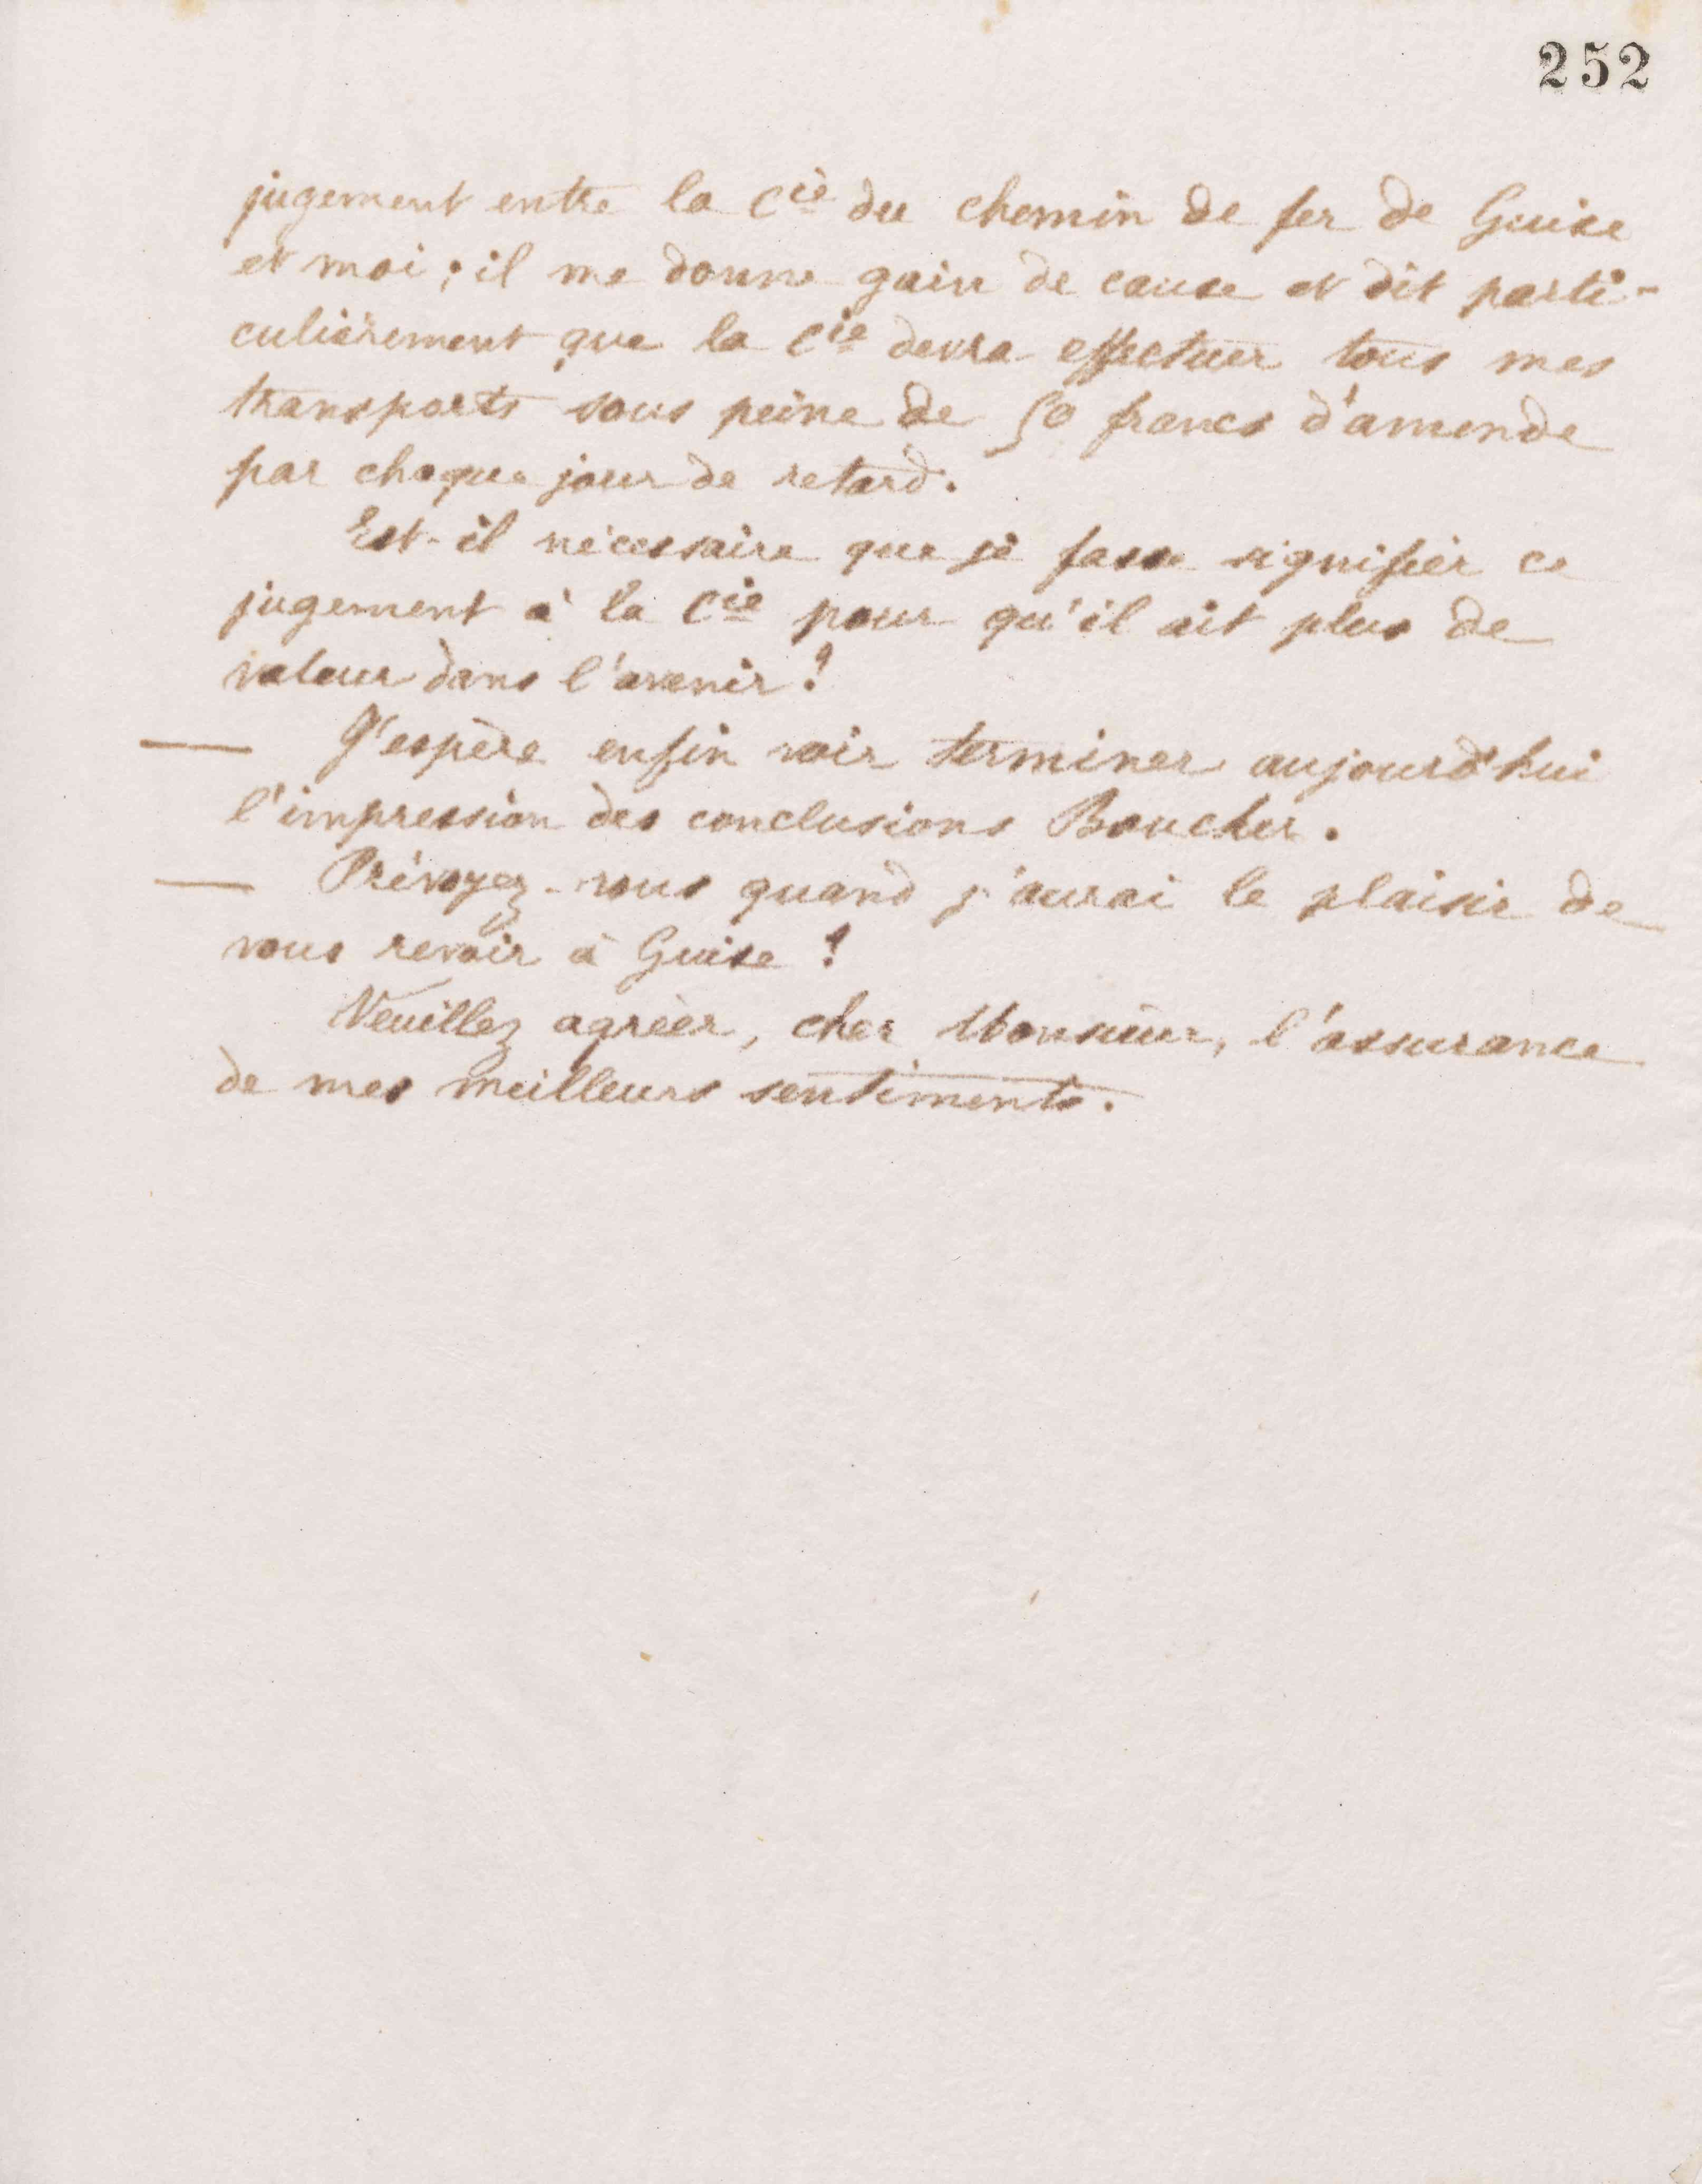 252
jugement entre la Cie du chemin de fer de Guise
et moi ; il me donne gain de cause et dit parti-
culièrement que la Cie devra effectuer tous mes
transports sous peine de 50 francs d'amende
par chaque jour de retard.
Est-il nécessaire que je fasse signifier ce
jugement à la Cie pour qu'il ait plus de
valeur dans l'avenir ?
— J'espère enfin voir terminer aujourd'hui
l'impression des conclusions Boucher.
— Prévoyez-vous quand j'aurai le plaisir de
vous revoir à Guise ?
Veuillez agréer, cher Monsieur, l'assurance
de mes meilleurs sentiments.